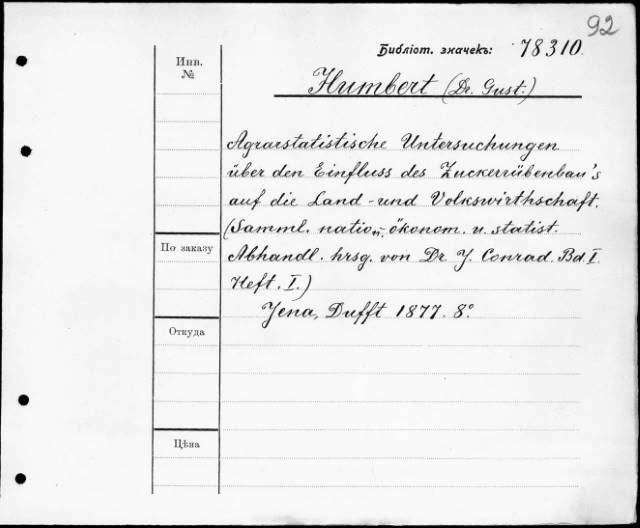 92
Библіот. значекъ: 78310.
Инв.
№
Humbert (Dr. Gust.)
Agrarstatistische Untersuchungen
über den Einfluss des Zuckerrübenbau's
auf die Land- und Volkswirthschaft.
(Samml. natio„- ökonom. u. statist.
По заказу
Abhandl. hrsg. von Dr J. Conrad. Bd. I.
Heft. I.)
Jena, Dufft 1877. 8°.
Откуда
Цѣна